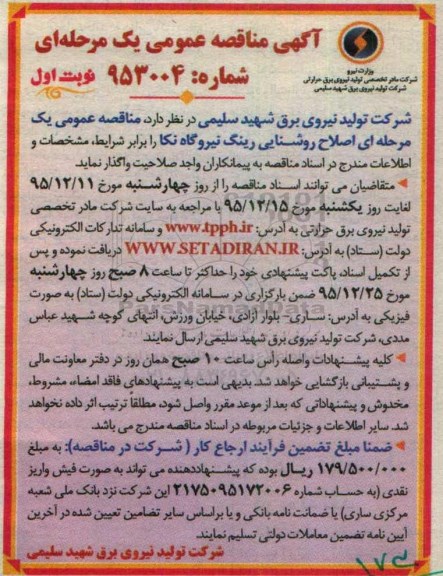 آگهی مناقصه عمومی یک مرحله‌ای
شماره: ۹۵۳۰۰۴ نوبت اول
وزارت نیرو
شرکت مادر تخصصی تولید نیروی برق حرارتی
شرکت تولید نیروی برق شهید سلیمی
شرکت تولید نیروی برق شهید سلیمی در نظر دارد، مناقصه عمومی یک
مرحله ای اصلاح روشنایی رینگ نیروگاه نکا را برابر شرایط، مشخصات و
اطلاعات مندرج در اسناد مناقصه به پیمانکاران واجد صلاحیت واگذار نماید.
متقاضیان می توانند اسناد مناقصه را از روز چهارشنبه مورخ ۹۵/۱۲/۱۱
لغایت روز یکشنبه مورخ ۹۵/۱۲/۱۵ با مراجعه به سایت شرکت مادر تخصصی
تولید نیروی برق حرارتی به آدرس: www.tpph.ir و سامانه تدارکات الکترونیکی
دولت (ستاد) به آدرس: WWW.SETADIRAN.IR دریافت نموده و پس
از تکمیل اسناد، پاکت پیشنهادی خود را حداکثر تا ساعت ۸ صبح روز چهارشنبه
مورخ ۹۵/۱۲/۲۵ ضمن بارگزاری در سامانه الکترونیکی دولت (ستاد) به صورت
فیزیکی به آدرس: ساری - بلوار آزادی، خیابان ورزش، انتهای کوچه شهید عباس
مددی، شرکت تولید نیروی برق شهید سلیمی ارسال نمایند.
کلیه پیشنهادات واصله رأس ساعت ۱۰ صبح همان روز در دفتر معاونت مالی
و پشتیبانی بازگشایی خواهد شد. بدیهی است به پیشنهادهای فاقد امضاء، مشروط،
مخدوش و پیشنهاداتی که بعد از موعد مقرر واصل شود، مطلقاً ترتیب اثر داده نخواهد
شد. سایر اطلاعات و جزئیات مربوطه در اسناد مناقصه مندرج می باشد.
ضمنا مبلغ تضمین فرآیند ارجاع کار ( شرکت در مناقصه): به مبلغ
۱۷۹/۵۰۰/۰۰۰ ریال بوده که پیشنهاددهنده می تواند به صورت فیش واریز
نقدی (به حساب شماره ۲۱۷۵۰۹۵۱۷۲۰۰۶ این شرکت نزد بانک ملی شعبه
مرکزی ساری) یا ضمانت نامه بانکی و یا براساس سایر تضامین تعیین شده در آخرین
آیین نامه تضمین معاملات دولتی تسلیم نمایند.
شرکت تولید نیروی برق شهید سلیمی